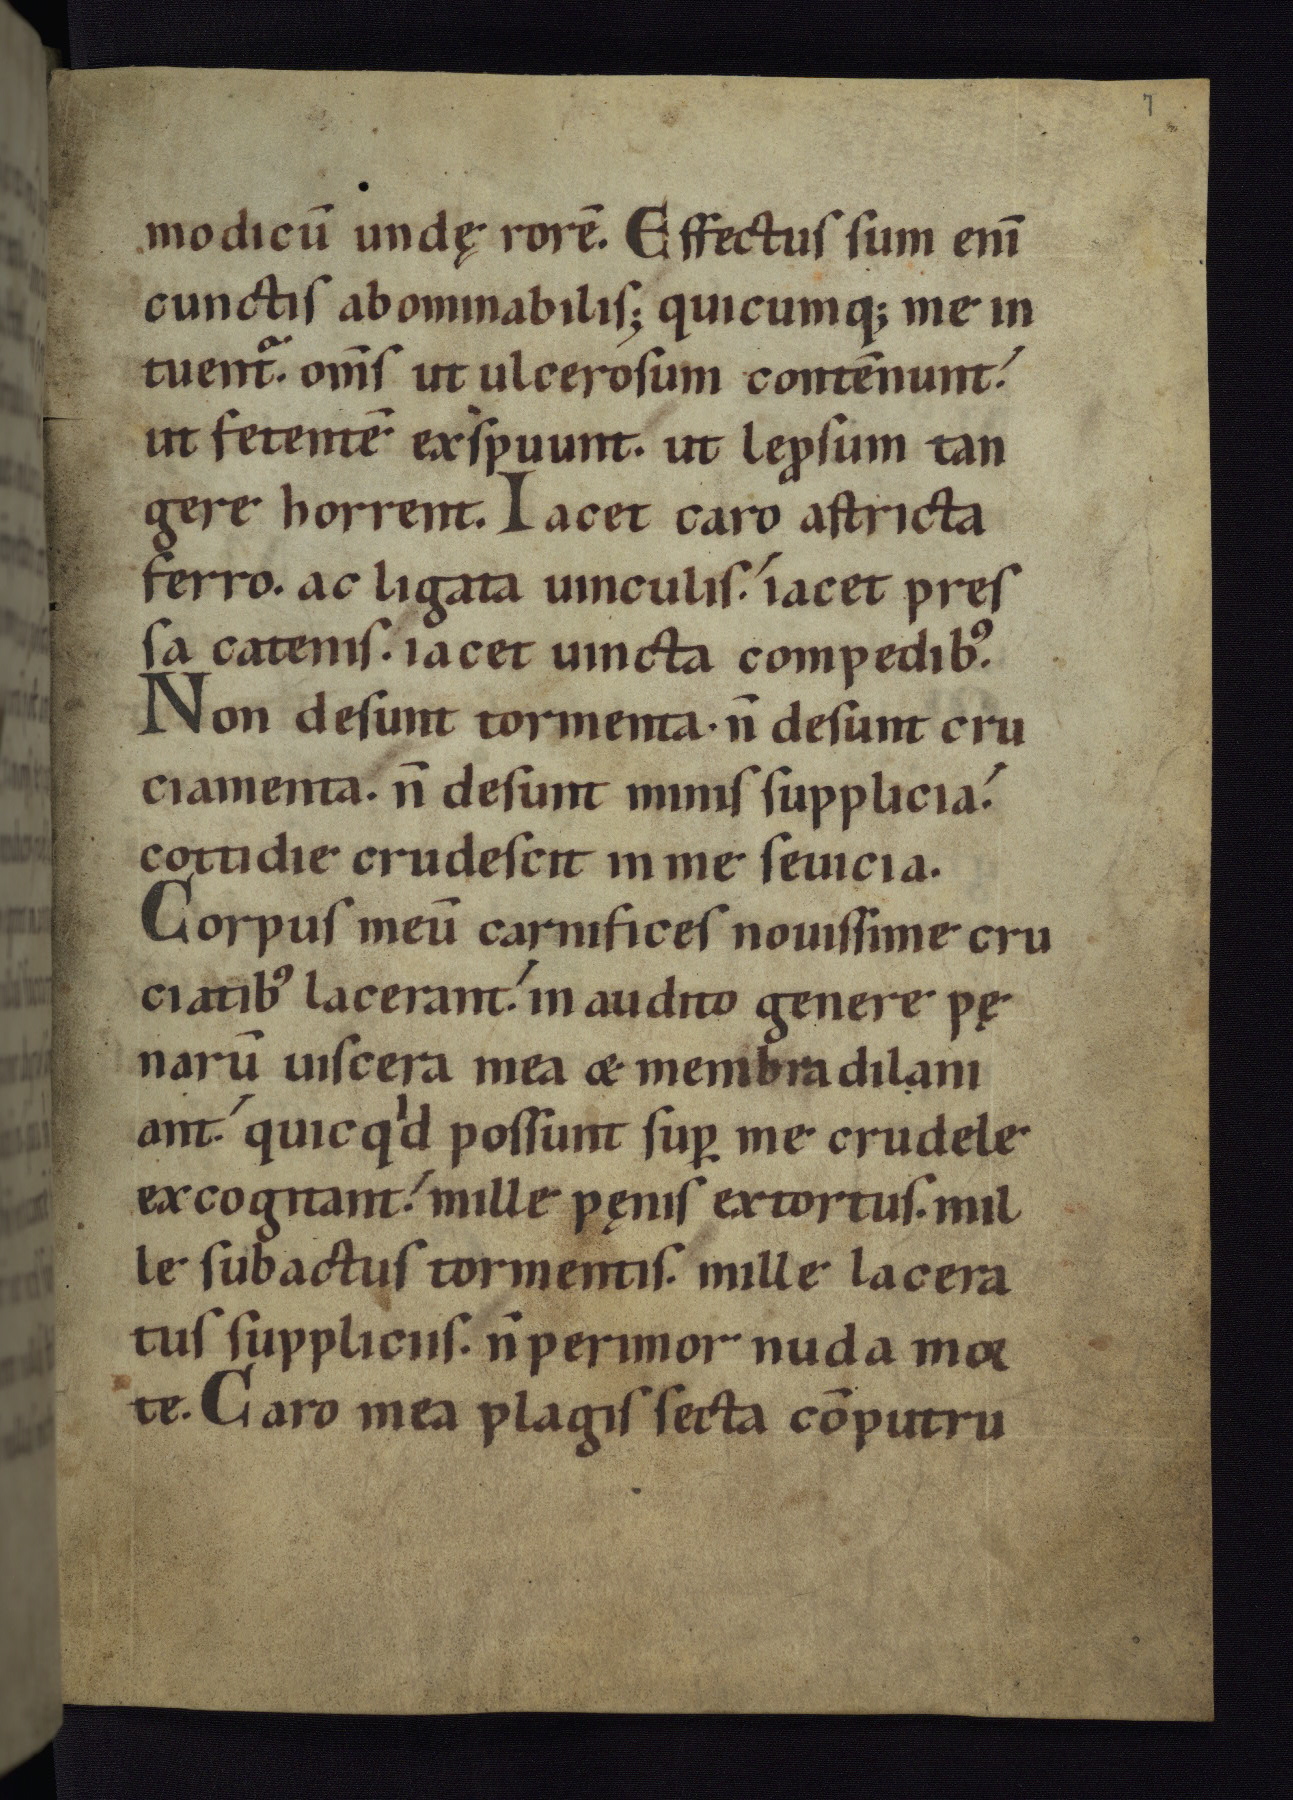 7
modicū undę rorē. Effectus sum enī
cunctis abominabilis; quicumq; me in
tuent᷒. om̄s ut ulcerosum contēnunt.
ut fetentē exspuunt. ut leꝓsum tan
gere horrent. Iacet caro astricta
ferro. ac ligata uinculis. iacet pres
sa catenis. iacet uincta compedibꝰ.
Non desunt tormenta. n̄ desunt cru
ciamenta. n̄ desunt minis supplicia.
cottidie crudescit in me seuicia.
Corpus meū carnifices nouissime cru
ciatibꝰ lacerant. inaudito genere pę
narū uiscera mea & membra dilani
ant. quicqͥd possunt suꝑ me crudele
excogitant. mille pęnis extortus. mil
le subactus tormentis. mille lacera
tus suppliciis. n̄ perimor nuda mor
te. Caro mea plagis secta cōputru